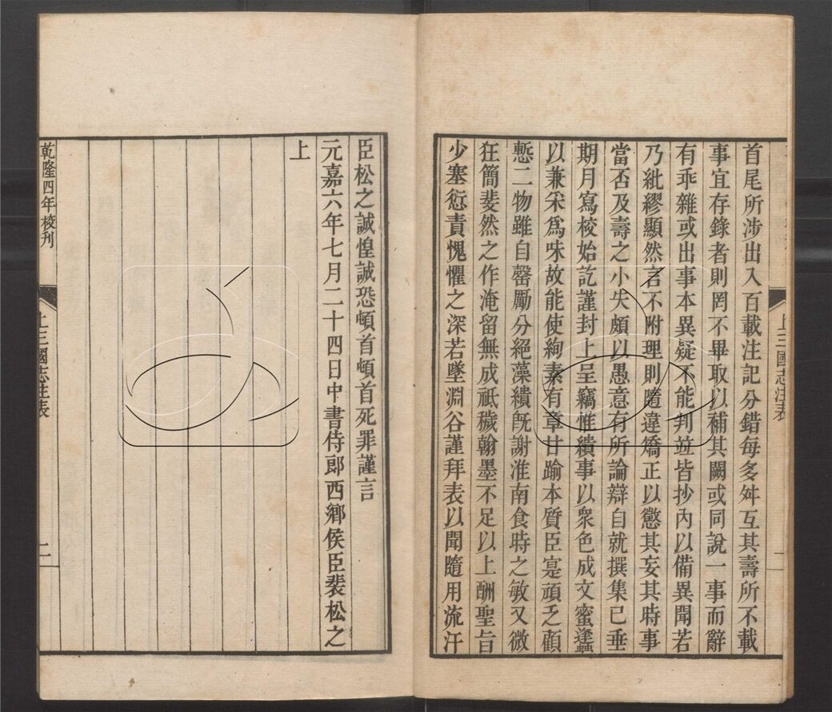 首尾所涉出入百載注記分錯每多舛互其壽所不載
事宜存錄者則罔不畢取以補其闕或同說一事而辭
有乖雜或出事本異疑不能判竝皆抄內以備異聞若
乃紕繆顯然言不附理則隨違矯正以懲其妄其時事
當否及壽之小失頗以愚意有所論辯自就撰集已垂
期月寫校始訖謹封上呈竊惟繢事以衆色成文蜜蠭
以兼采爲味故能使絢素有章甘踰本質臣寔頑乏顧
慙二物雖自罄勵分絕藻繢旣謝淮南食時之敏又微
狂簡斐然之作淹留無成祇穢翰墨不足以上酬聖旨
少塞愆責愧懼之深若墜淵谷謹拜表以聞隨用流汗
上三國志注表
臣松之誠惶誠恐頓首頓首死罪謹言
元嘉六年七月二十四日中書侍郎西鄉侯臣裴松之
上
乾隆四年校刊
上三國志注表
二